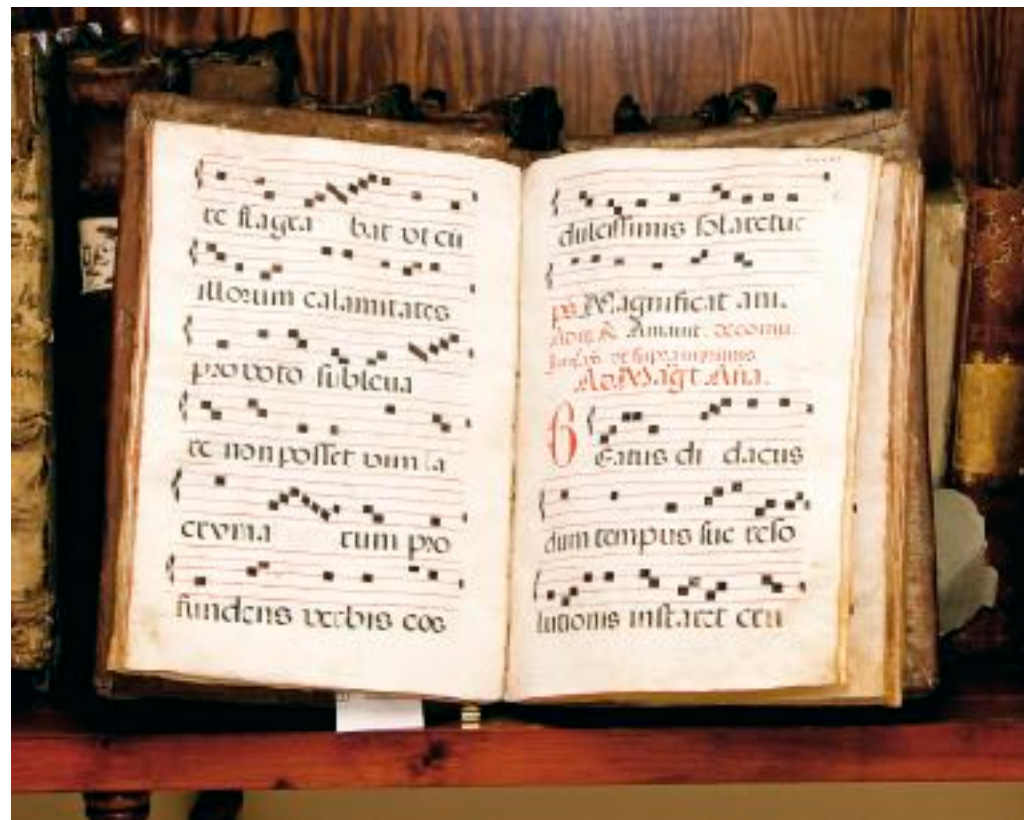 te flagra bat vt cū
illorum calamitates
pro voto subleua
re non posset vim la
cryma rum pro
fundens verbis eos
dulcissimis solaretur
ps. Magnificat ani.
Amauit. de comu.
vt supra in primis
Ad Magt. Aña.
Beatus di dacus
dum tempus suę reso
lutionis instaret cru